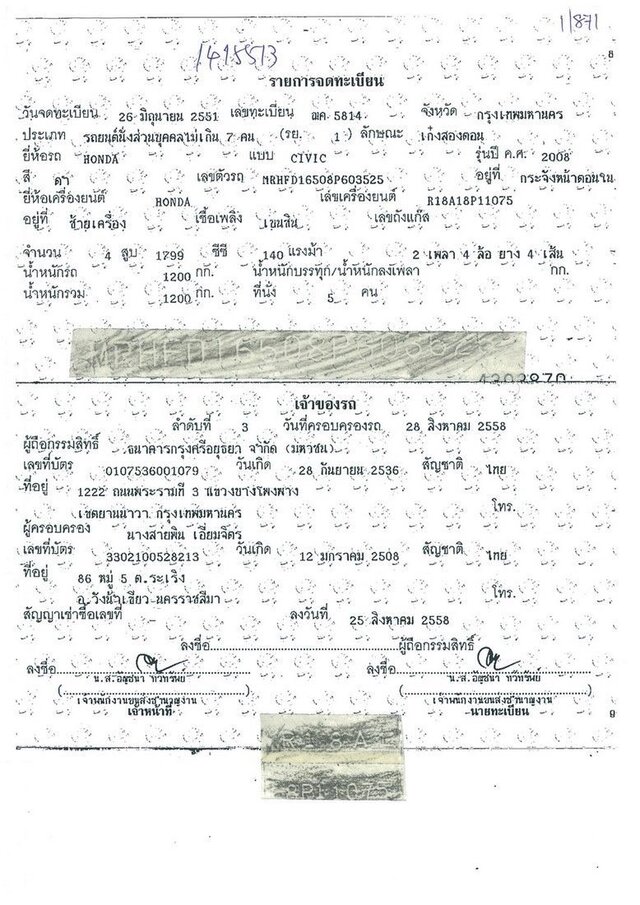 1/871
1415513
8
รายการจดทะเบียน
วันจดทะเบียน 26 มิถุนายน 2551 เลขทะเบียน ฌค 5814 จังหวัด กรุงเทพมหานคร
ประเภท รถยนต์นั่งส่วนบุคคลไม่เกิน 7 คน (รย. 1) ลักษณะ เก๋งสองตอน
ยี่ห้อรถ HONDA แบบ CIVIC รุ่นปี ค.ศ. 2008
สี ดำ เลขตัวรถ MRHFD16508P603525 อยู่ที่ กระจังหน้าตอนใน
ยี่ห้อเครื่องยนต์ HONDA เลขเครื่องยนต์ R18A18P11075
อยู่ที่ ซ้ายเครื่อง เชื้อเพลิง เบนซิน เลขถังแก๊ส
จำนวน 4 สูบ 1799 ซีซี 140 แรงม้า 2 เพลา 4 ล้อ ยาง 4 เส้น
น้ำหนักรถ 1200 กก. น้ำหนักบรรทุก/น้ำหนักลงเพลา กก.
น้ำหนักรวม 1200 กก. ที่นั่ง 5 คน
เจ้าของรถ
ลำดับที่ 3 วันที่ครอบครองรถ 28 สิงหาคม 2558
ผู้ถือกรรมสิทธิ์ ธนาคารกรุงศรีอยุธยา จำกัด (มหาชน)
เลขที่บัตร 0107536001079 วันเกิด 28 กันยายน 2536 สัญชาติ ไทย
ที่อยู่ 1222 ถนนพระรามที่ 3 แขวงบางโพงพาง
เขตยานนาวา กรุงเทพมหานคร โทร.
ผู้ครอบครอง นางสายพิน เอี่ยมจิตร
เลขที่บัตร 3302100528213 วันเกิด 12 มกราคม 2508 สัญชาติ ไทย
ที่อยู่ 86 หมู่ 5 ต.ระเริง
อ.วังน้ำเขียว นครราชสีมา โทร.
สัญญาเช่าซื้อเลขที่ ลงวันที่ 25 สิงหาคม 2558
ลงชื่อ ผู้ถือกรรมสิทธิ์
ลงชื่อ ลงชื่อ
น.ส.อัญชนา ทวีทรัพย์ น.ส.อัญชนา ทวีทรัพย์
เจ้าพนักงานขนส่งชำนาญงาน เจ้าพนักงานขนส่งชำนาญงาน
เจ้าหน้าที่ นายทะเบียน
9
R18A
8P11075